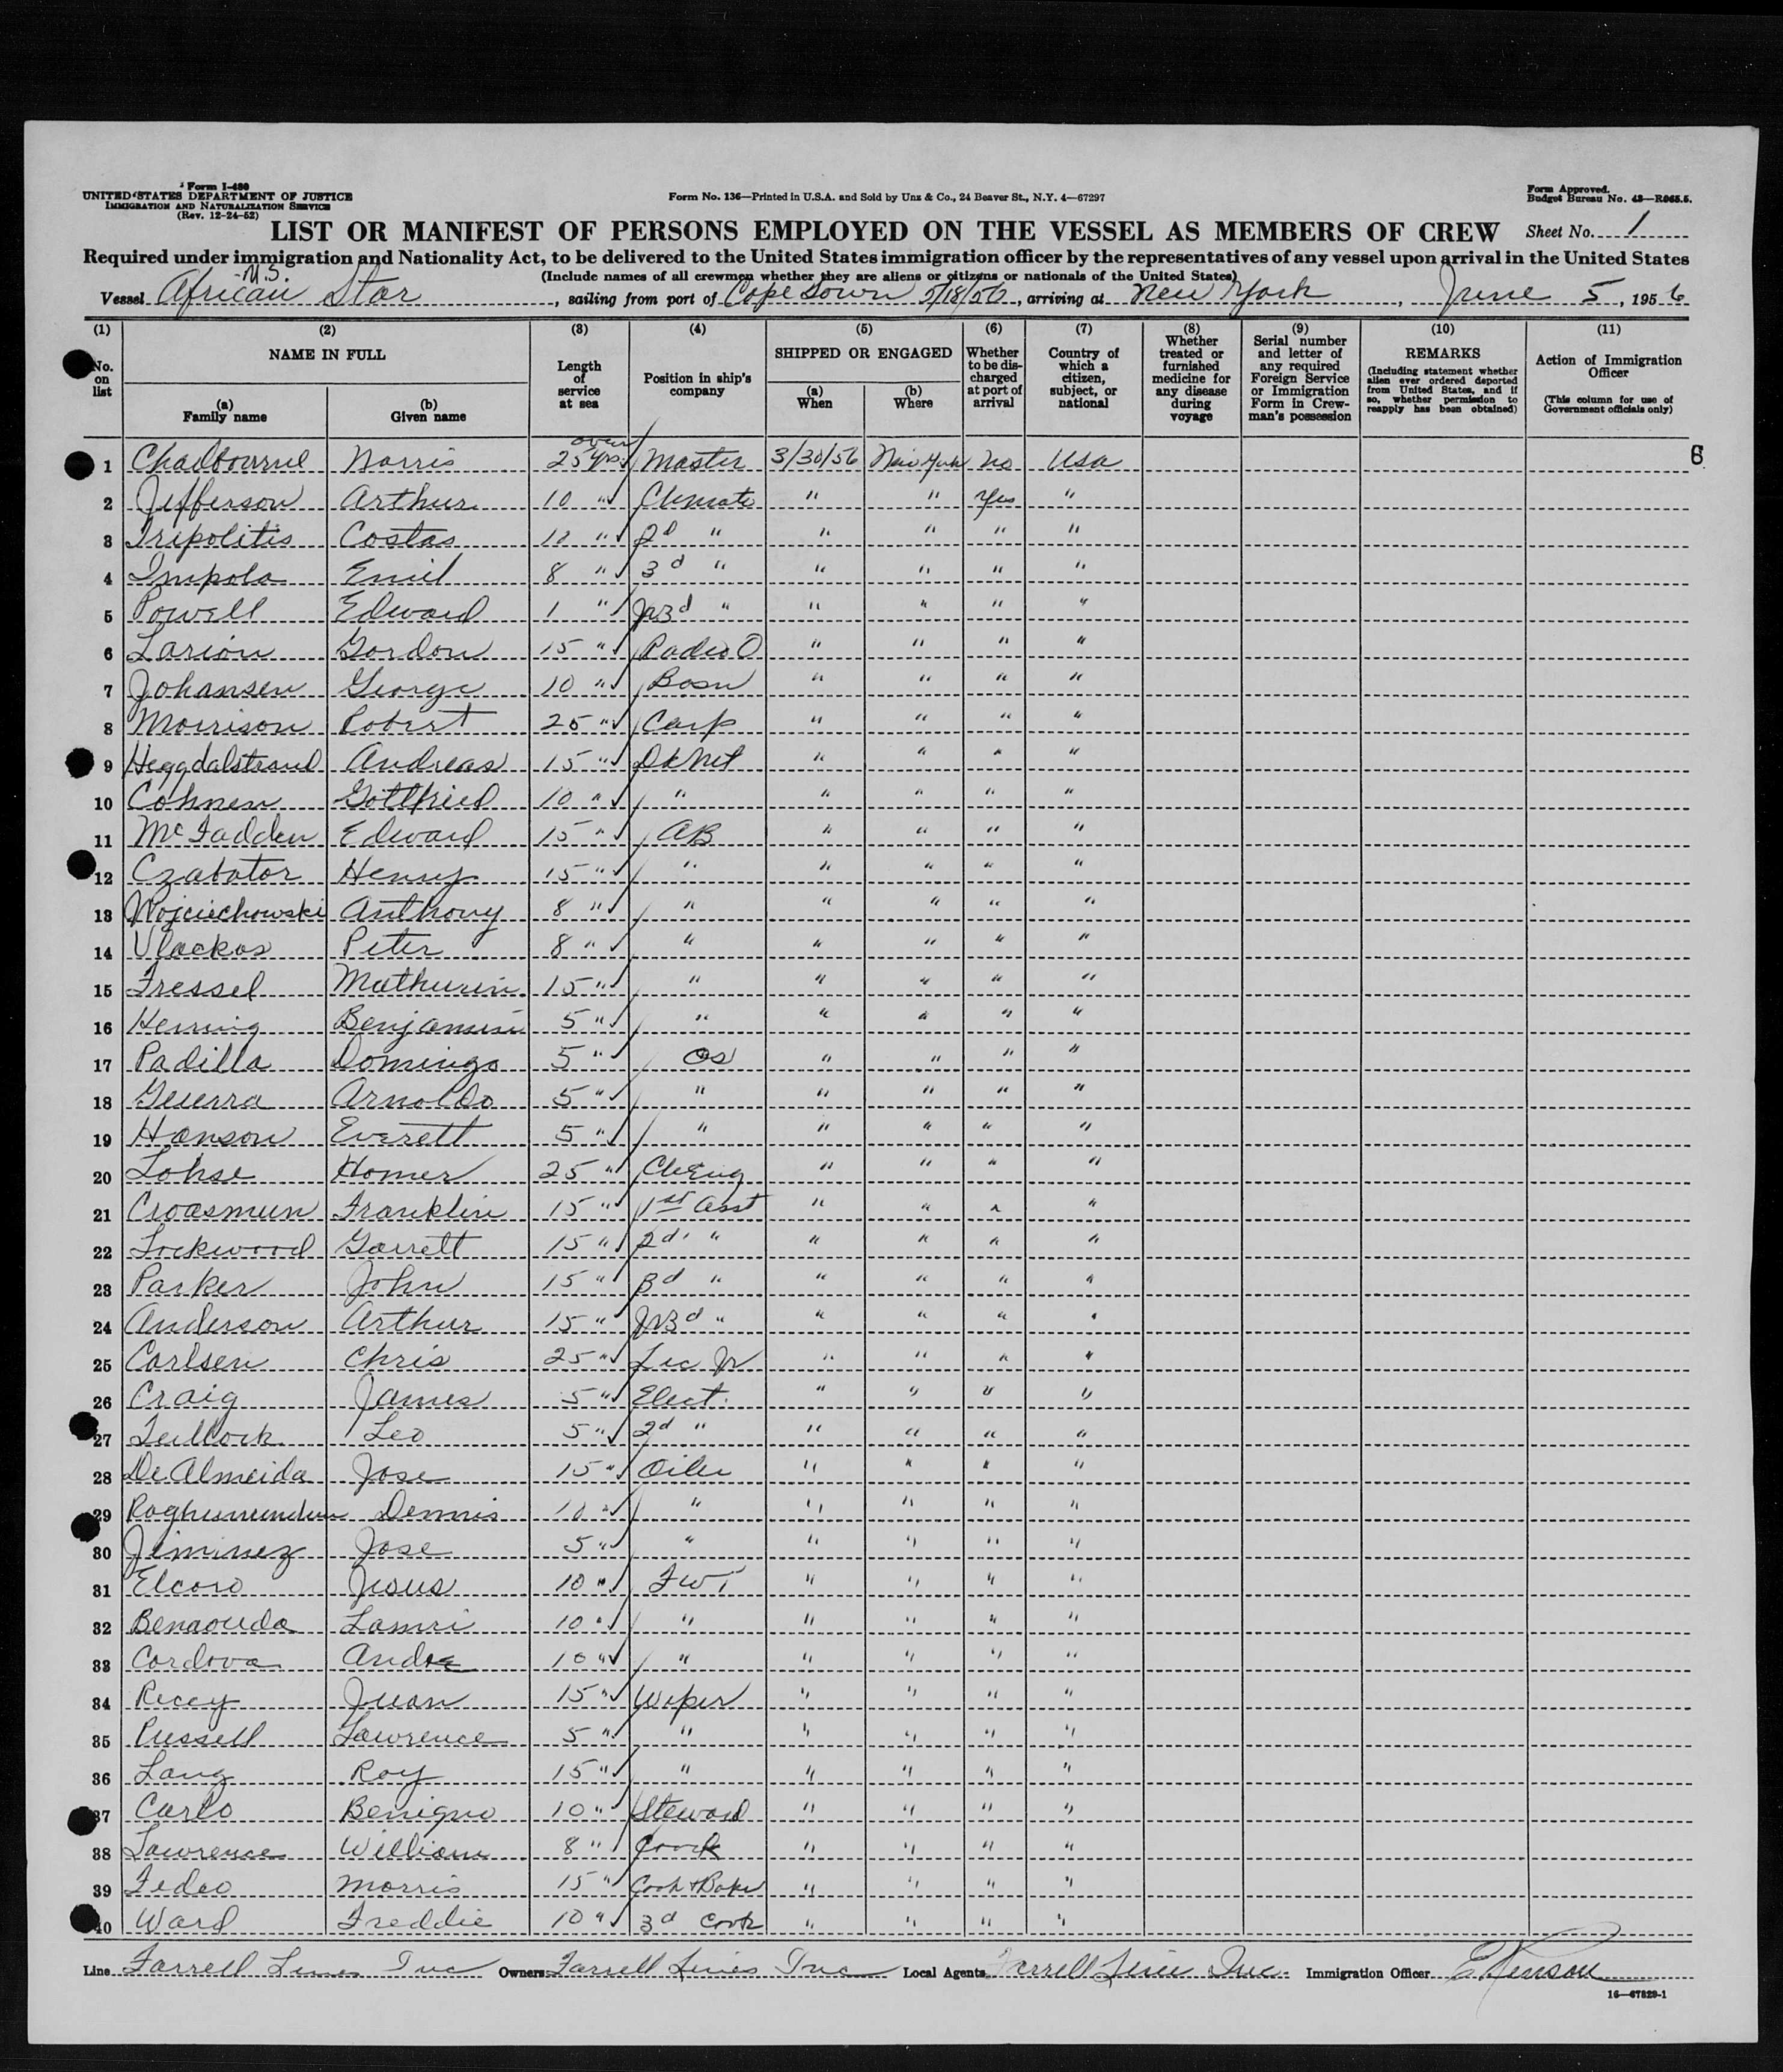 Form I-480
UNITED STATES DEPARTMENT OF JUSTICE
IMMIGRATION AND NATURALIZATION SERVICE
(Rev. 12-24-52)
Form No. 136—Printed in U.S.A. and Sold by Unz & Co., 24 Beaver St., N.Y. 4—67297
Form Approved.
Budget Bureau No. 43—R065.5.
LIST OR MANIFEST OF PERSONS EMPLOYED ON THE VESSEL AS MEMBERS OF CREW Sheet No. 1
Required under immigration and Nationality Act, to be delivered to the United States immigration officer by the representatives of any vessel upon arrival in the United States
(Include names of all crewmen whether they are aliens or citizens or nationals of the United States)
Vessel African Star, sailing from port of Cape Town 5/18/56, arriving at New York, June 5, 1956
(1) (2) (3) (4) (5) (6) (7) (8) (9) (10) (11)
No. on list
NAME IN FULL
(a) Family name
(b) Given name
Length of service at sea
Position in ship's company
SHIPPED OR ENGAGED
(a) When
(b) Where
Whether to be discharged at port of arrival
Country of which a citizen, subject, or national
Whether treated or furnished medicine for any disease during voyage
Serial number and letter of any required Foreign Service or Immigration Form in Crewman's possession
REMARKS
(Including statement whether alien ever ordered deported from United States, and if so, whether permission to reapply has been obtained)
Action of Immigration Officer
(This column for use of Government officials only)
1 Chadbourne Norris over 25 yrs Master 3/30/56 New York no USA 6
2 Jefferson Arthur 10 " Ch mate " " Yes "
3 Tripolitis Costas 10 " 2d " " " " "
4 Impola Emil 8 " 3d " " " " "
5 Powell Edward 1 " Jr 3d " " " " "
6 Larion Gordon 15 " Radio O " " " "
7 Johansen George 10 " Bosn " " " "
8 Morrison Robert 25 " Carp " " " "
9 Heggdalstrand Andreas 15 " Dk Mt " " " "
10 Cohnen Gottfried 10 " " " " " "
11 McFadden Edward 15 " AB " " " "
12 Czabator Henry 15 " " " " " "
13 Wojciechowski Anthony 8 " " " " " "
14 Vlackos Peter 8 " " " " " "
15 Fressel Mathurin 15 " " " " " "
16 Herring Benjamin 5 " " " " " "
17 Padilla Domingo 5 " OS " " " "
18 Guerra Arnoldo 5 " " " " " "
19 Hanson Everett 5 " " " " " "
20 Lohse Homer 25 " Ch Eng " " " "
21 Croasmun Franklin 15 " 1st Asst " " " "
22 Lockwood Garrett 15 " 2d " " " " "
23 Parker John 15 " 3d " " " " "
24 Anderson Arthur 15 " Jr 3d " " " " "
25 Carlsen Chris 25 " Lic Jr " " " "
26 Craig James 5 " Elect. " " " "
27 Leo 5 " 2d " " " " "
28 De Almeida Jose 15 " Oiler " " " "
29 Dennis 10 " " " " " "
30 Jiminez Jose 5 " " " " " "
31 Elcoro Jesus 10 " FWT " " " "
32 Benaouda Lamri 10 " " " " " "
33 Cordova 10 " " " " " "
34 Recey Juan 15 " Wiper " " " "
35 Russell Lawrence 5 " " " " " "
36 Lang Roy 15 " " " " " "
37 Carlo Benigno 10 " Steward " " " "
38 Lawrence William 8 " Cook " " " "
39 Fedeo Morris 15 " Cook & Baker " " " "
40 Ward Freddie 10 " 3d Cook " " " "
Line Farrell Lines Inc Owners Farrell Lines Inc Local Agents Farrell Lines Inc. Immigration Officer
16—67829-1